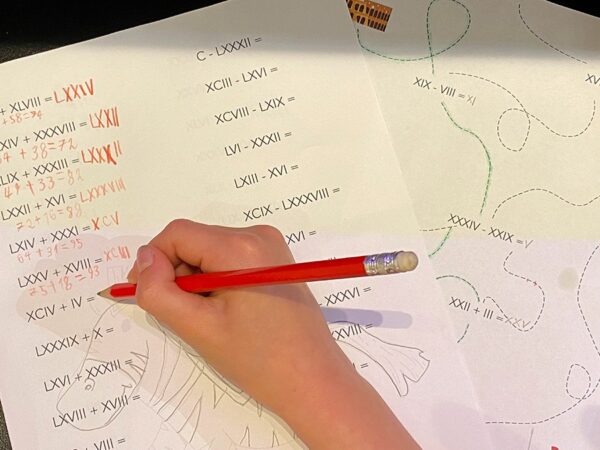 + XLVIII = LXXIV
XIV + XXXVIII = LXXII
4 + 38=72
LIX + XXXIII = LXXXII
49+33=82
LXXII + XVI = LXXXVIII
72+16=88
LXIV + XXXI = XCV
64+31=95
LXXV + XVIII = XCIII
75+18=93
XCIV + IV =
LXXXIX + X =
LXVI + XXXIII =
LXVIII + XVIII =
+ VIII =
C - LXXXII =
XCIII - LXVI =
XCVIII - LXIX =
LVI - XXXII =
LXIII - XVI =
XCIX - LXXXVIII =
XVI =
- XXXVI =
XVIII =
XIX - VIII = XI
XV
XXXIV - XXIX = V
XXII + III = XXV